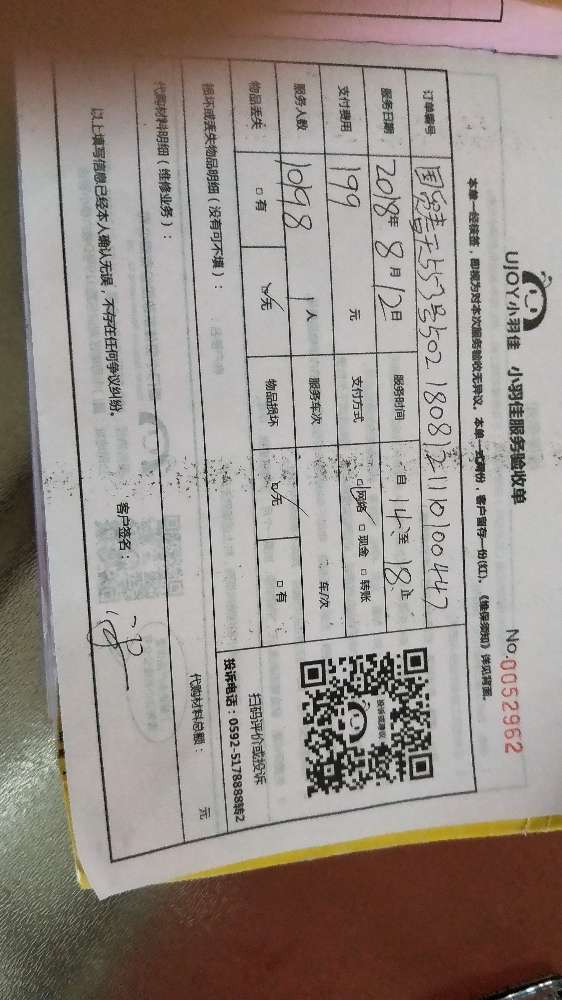 UJOY小羽佳 小羽佳服务验收单 No.0052962
本单一经核签，即视为对本次服务验收无异议。本单一式两份，客户留存一份(红)。《维保须知》详见背面。
订单编号 553号502 180812110100447
服务日期 2018年 8月12日 服务时间 自 14至 18止
支付费用 199 元 支付方式 □网络 □现金 □转账
服务人数 1098 1人 服务车次 车/次
物品丢失 □有 □无 物品损坏 □无 □有
损坏或丢失物品明细（没有可不填）：
代购材料明细（维修业务）： 代购材料总额： 元
以上填写信息已经本人确认无误，不存在任何争议纠纷。 客户签名：
投诉或建议
扫码评价或投诉
投诉电话：0592-5178888转2